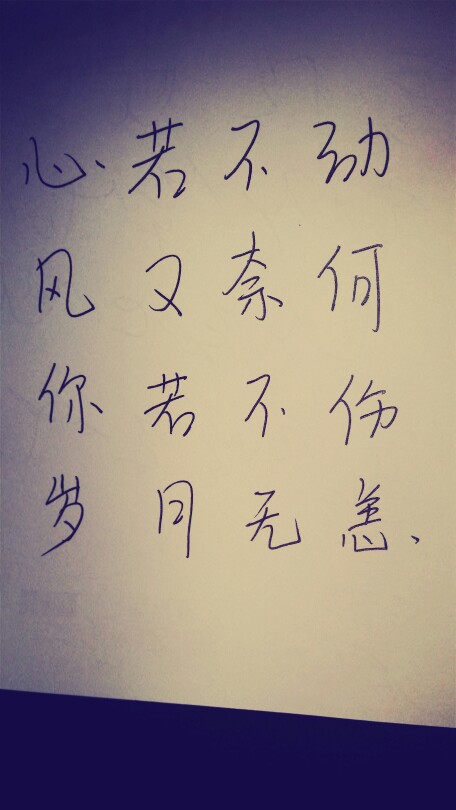 心若不动
风又奈何
你若不伤
岁月无恙、